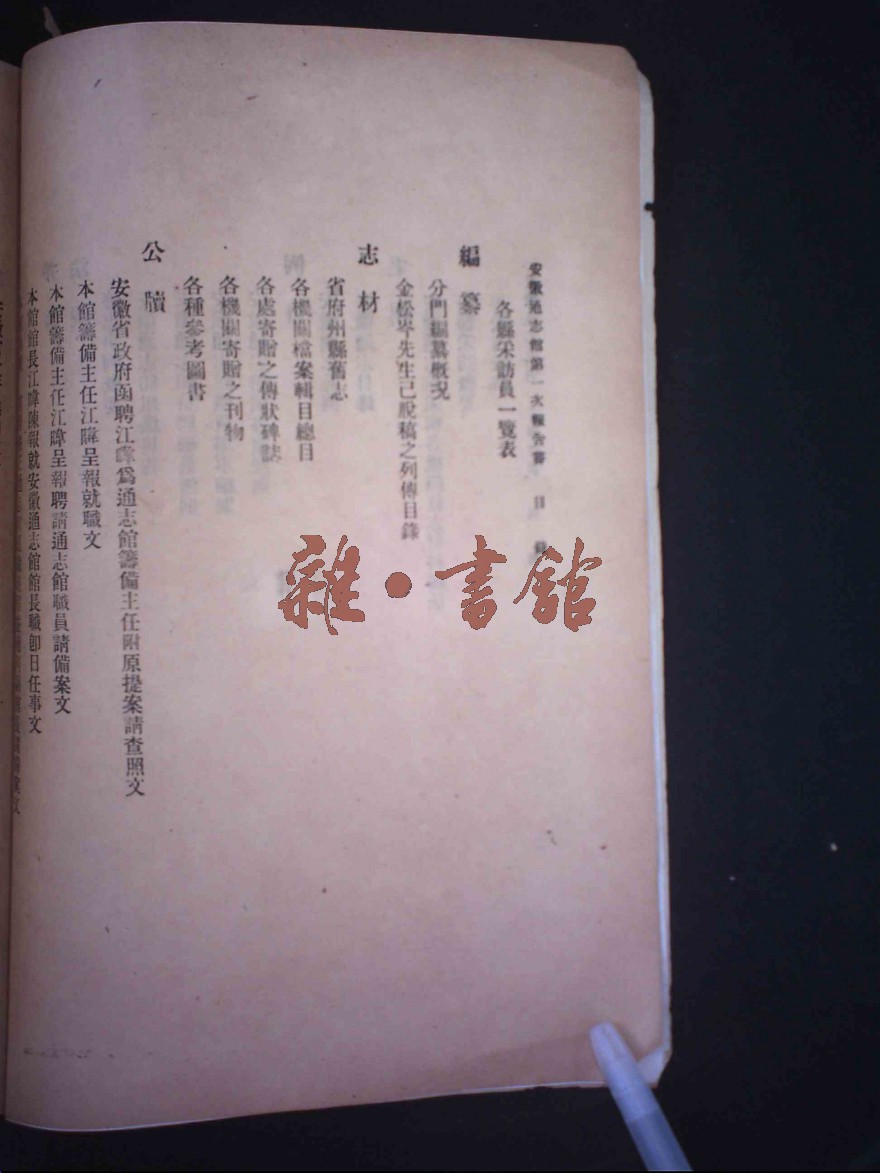 安徽通志館第一次報告書 目錄
各縣采訪員一覽表
編纂
分門編纂概況
金松岑先生已脫稿之列傳目錄
志材
省府州縣舊志
各機關檔案輯目總目
各處寄贈之傳狀碑誌
各機關寄贈之刊物
各種參考圖書
公牘
安徽省政府函聘江暐爲通志館籌備主任附原提案請查照文
本館籌備主任江暐呈報就職文
本館籌備主任江暐呈報聘請通志館職員請備案文
本館館長江暐陳報就安徽通志館館長職卽日任事文
雜·書館